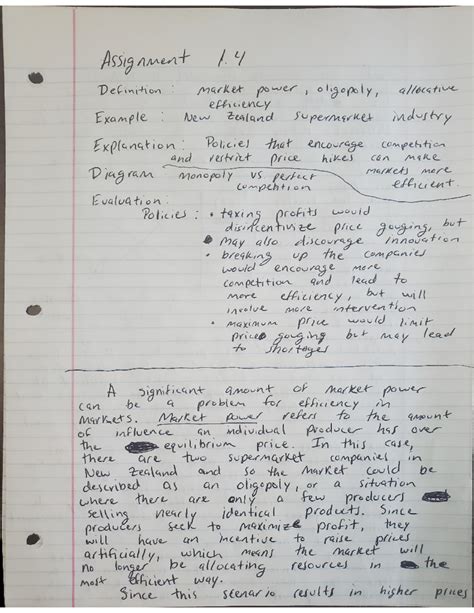 Assignment 1.4
Definition : market power, oligopoly, allocative
efficiency
Example : New Zealand supermarket industry
Explanation : Policies that encourage competition
and restrict price hikes can make
markets more
efficient.
Diagram monopoly vs perfect
competition
Evaluation :
Policies : • taxing profits would
disincentivize price gouging, but
• may also discourage innovation
• breaking up the companies
would encourage more
competition and lead to
more efficiency, but will
involve more intervention
• maximum price would limit
price gouging but may lead
to shortages
A significant amount of market power
can be a problem for efficiency in
markets. Market power refers to the amount
of influence an individual producer has over
the equilibrium price. In this case,
there are two supermarket companies in
New Zealand and so the market could be
described as an oligopoly, or a situation
where there are only a few producers
selling nearly identical products. Since
producers seek to maximize profit, they
will have an incentive to raise prices
artificially, which means the market will
no longer be allocating resources in the
most efficient way.
Since this scenario results in higher prices